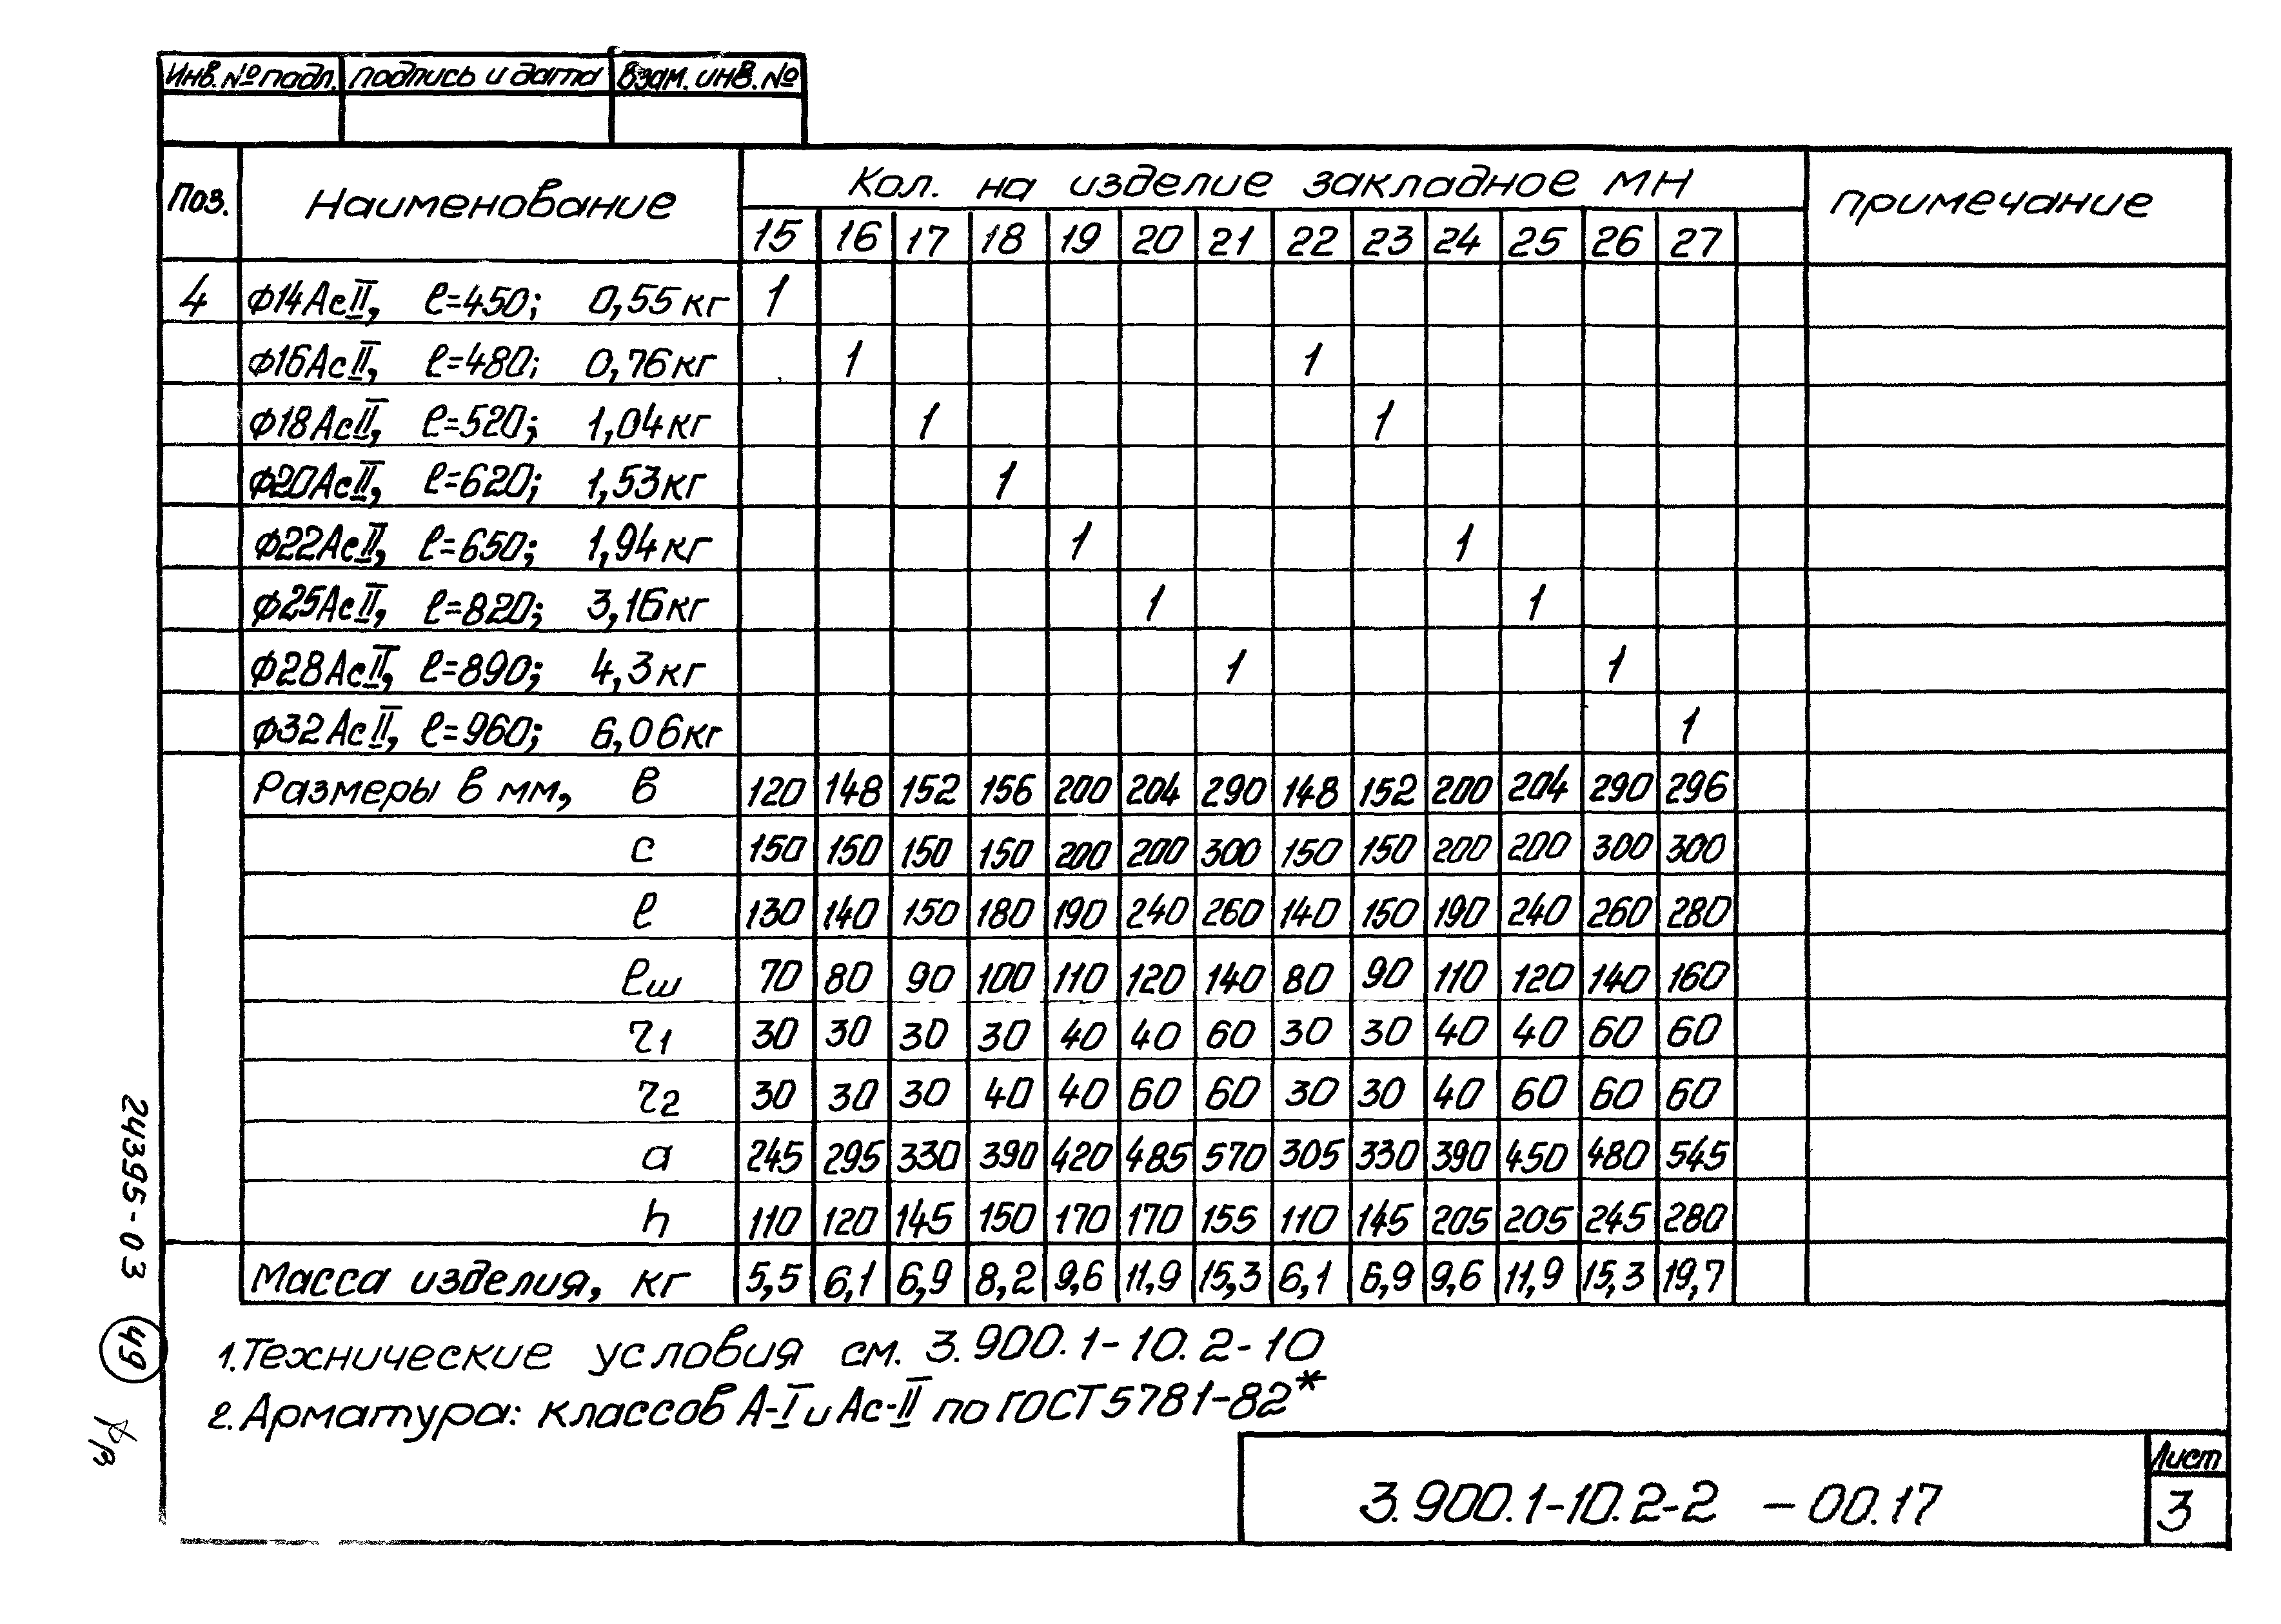 Инв. № подл. подпись и дата Взам. инв. №
Поз. Наименование Кол. на изделие закладное МН примечание
15 16 17 18 19 20 21 22 23 24 25 26 27
4 ф14АсII, ℓ=450; 0,55 кг 1
ф16АсII, ℓ=480; 0,76 кг 1 1
ф18АсII, ℓ=520; 1,04 кг 1 1
ф20АсII, ℓ=620; 1,53 кг 1
ф22АсII, ℓ=650; 1,94 кг 1 1
ф25АсII, ℓ=820; 3,16 кг 1 1
ф28АсII, ℓ=890; 4,3 кг 1 1
ф32АсII, ℓ=960; 6,06 кг 1
Размеры в мм, в 120 148 152 156 200 204 290 148 152 200 204 290 296
с 150 150 150 150 200 200 300 150 150 200 200 300 300
ℓ 130 140 150 180 190 240 260 140 150 190 240 260 280
ℓш 70 80 90 100 110 120 140 80 90 110 120 140 160
r1 30 30 30 30 40 40 60 30 30 40 40 60 60
r2 30 30 30 40 40 60 60 30 30 40 60 60 60
а 245 295 330 390 420 485 570 305 330 390 450 480 545
h 110 120 145 150 170 170 155 110 145 205 205 245 280
Масса изделия, кг 5,5 6,1 6,9 8,2 9,6 11,9 15,3 6,1 6,9 9,6 11,9 15,3 19,7
1. Технические условия см. 3.900.1-10.2-10
2. Арматура: классов А-I и Ас-II по ГОСТ 5781-82*
3.900.1-10.2-2 - 00.17
Лист
3
24395-03 49